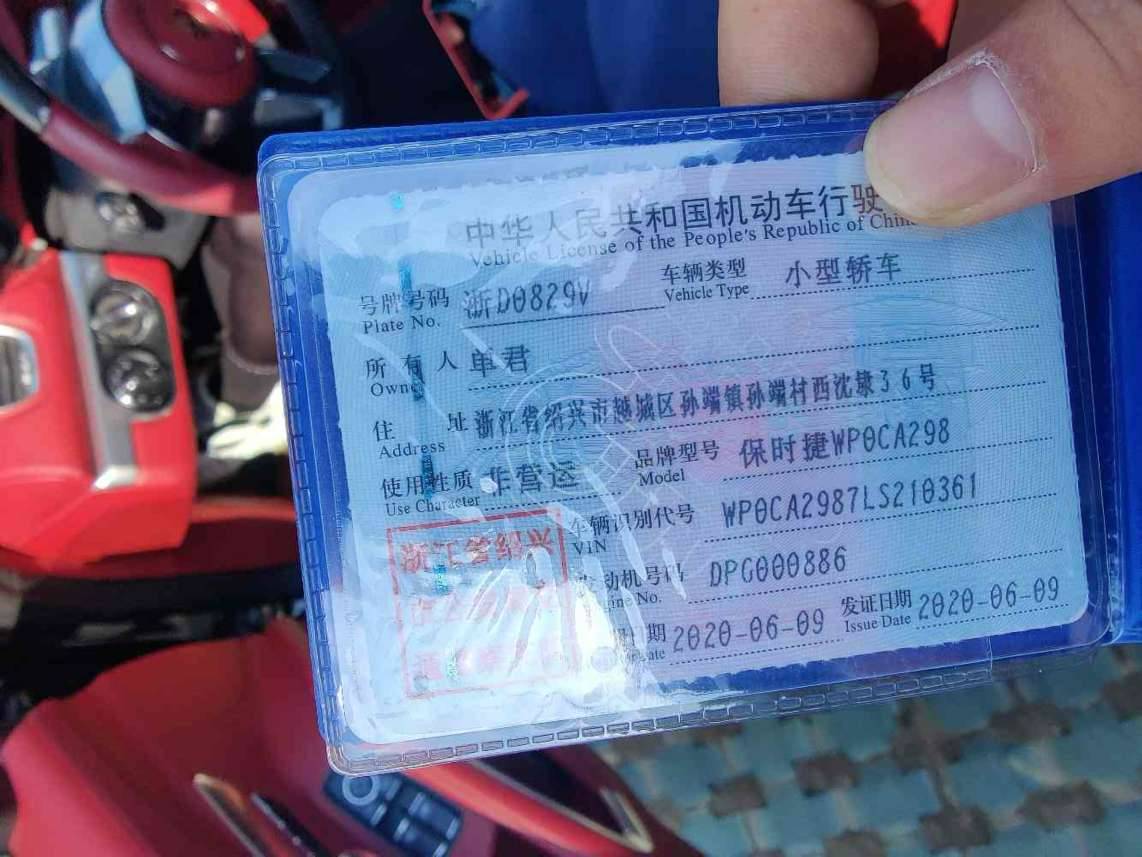 中华人民共和国机动车行驶
Vehicle License of the People's Republic of China
号牌号码 浙D0829V 车辆类型 小型轿车
Plate No. Vehicle Type
所有人 单君
Owner
住址 浙江省绍兴市越城区孙端镇孙端村西沈溇36号
Address
使用性质 非营运 品牌型号 保时捷WP0CA298
Use Character Model
浙江省绍兴 车辆识别代号 WP0CA2987LS210361
VIN
动机号码 DPG000886
ine No.
期 2020-06-09 发证日期 2020-06-09
ate Issue Date